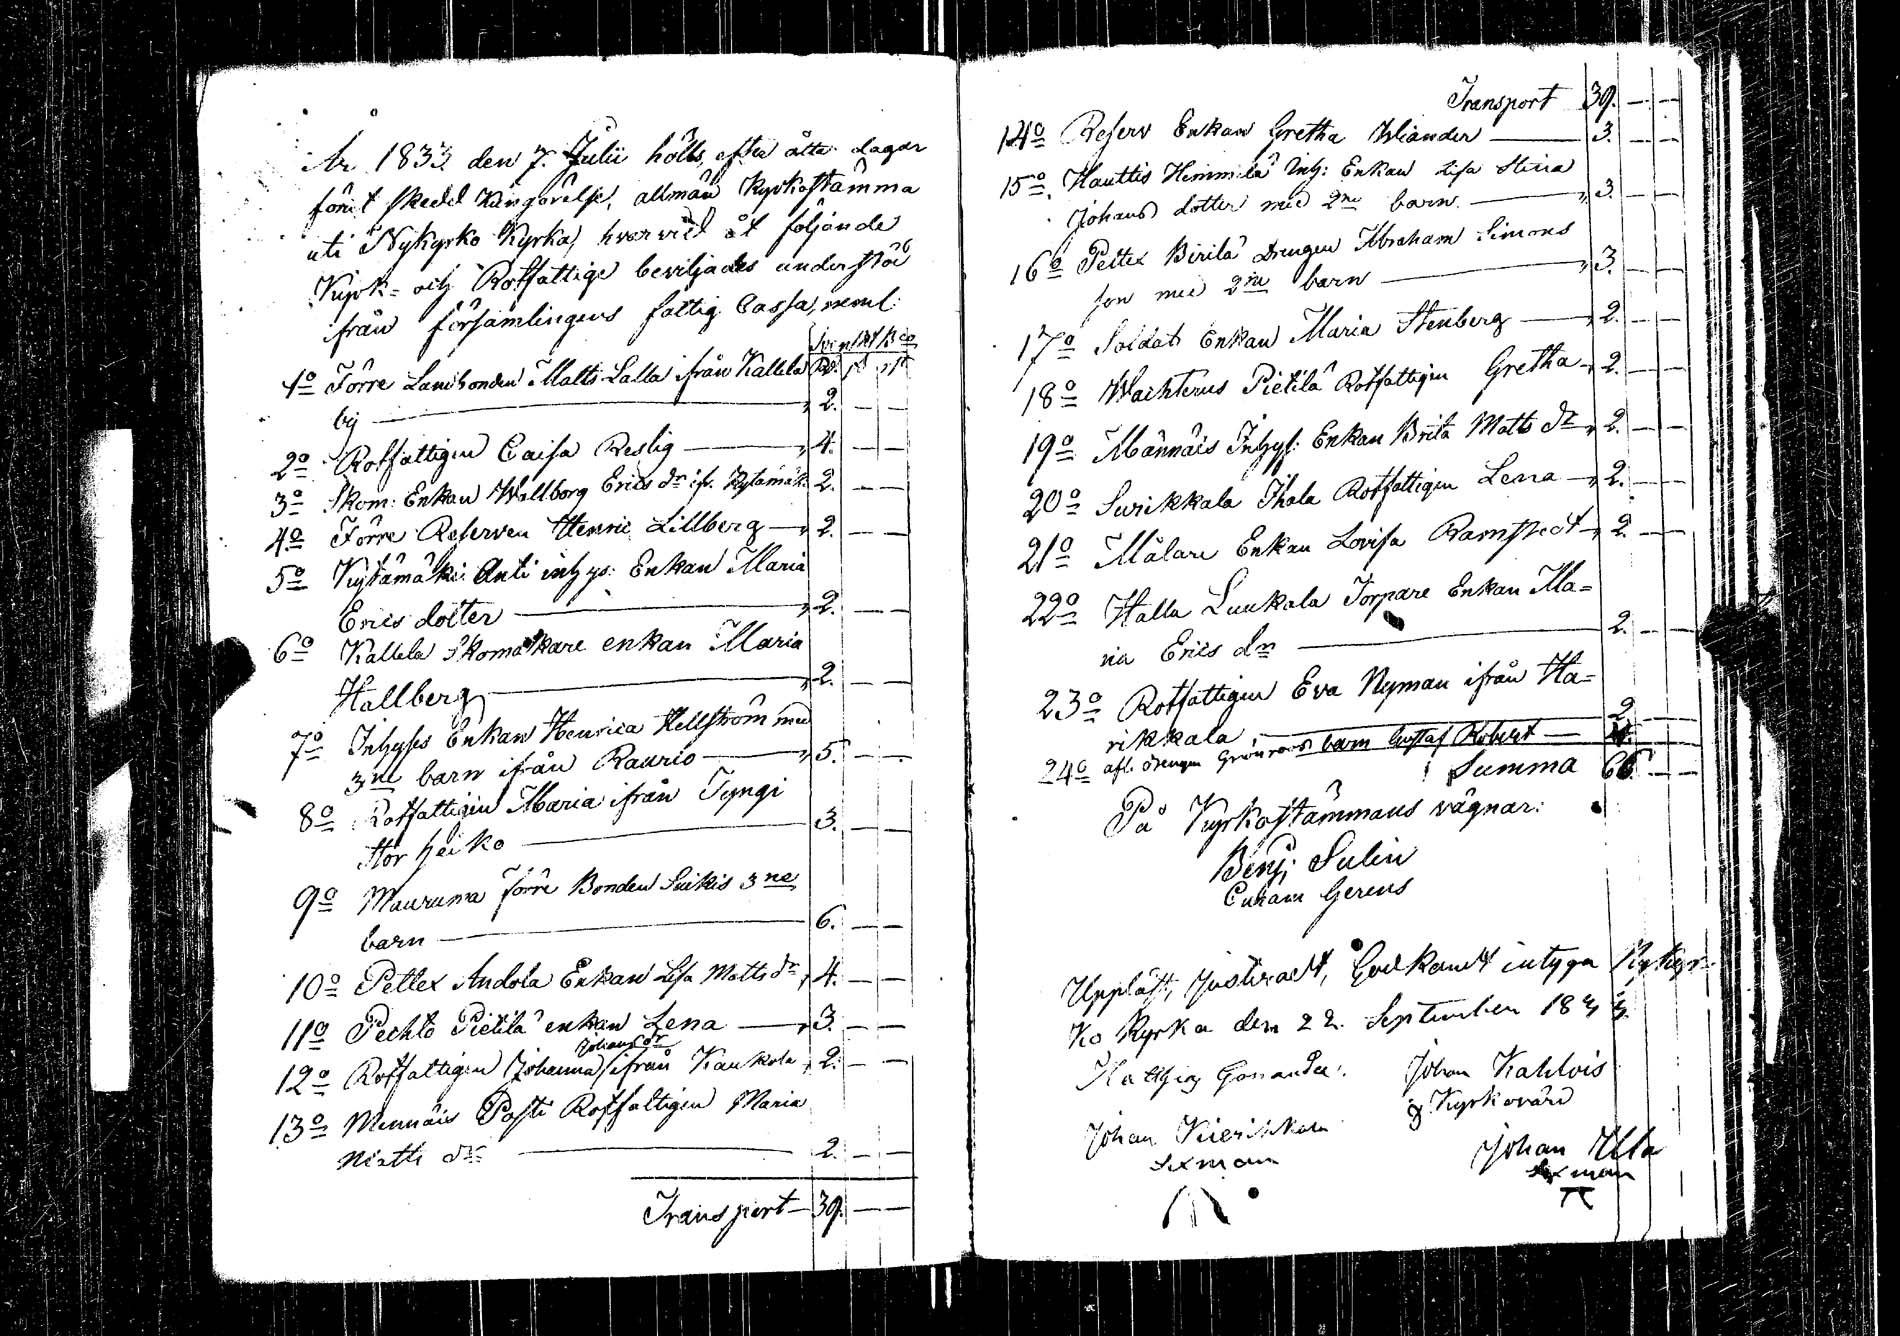 År 1833 den 7. Julii hölls, efter åtta dagar
förut skedd kungörelse, allmän Kyrkostämma
uti Nykyrko Kyrka, hvarvid åt följande
Kyrk- och Rotfattige beviljades understöd
ifrån församlingens fattig Cassa, neml:
1º Förre Landbonden Matts Lalla ifrån Kallela
by — 2. — —
2º Rotfattigen Caisa Reslig — 4. — —
3º Skom: Enkan Wallborg Erics dr ifr. Kytämäk: 2. — —
4º Förre Reserven Henric Lillberg — 2. — —
5º Kytämäki Anti inhys: Enkan Maria
Erics dotter — 2. — —
6º Kallela Skomakare enkan Maria
Hallberg — 2. — —
7º Inhyses Enkan Henrica Hellström med
3ne barn ifrån Raurio — 5. — —
8º Rotfattigen Maria ifrån Tyngi
Stor heiko — 3. — —
9º Mauruma förre Bonden Suikis 3ne
barn — 6. — —
10º Peltex Andola Enkan Lisa Matts dr 4. — —
11º Pechto Pietilä enkan Lena — 3. — —
Johans dr
12º Rotfattigen Johanna ifrån Kaukola 2. — —
13º Mennäis Pasti Rotfattigen Maria
Matts dr — 2. — —
Transport — 39. — —
Transport 39. — —
14º Reserv Enkan Gretha Wiander — 3. — —
15º Hauttis Himmilä Inh: Enkan Lisa Stina
Johans dotter med 2ne barn — 3. — —
16º Peltex Birilä Drengen Abraham Simons
son med 2ne barn — 3. — —
17º Soldats Enkan Maria Stenberg — 2. — —
18º Wachterus Pietilä Rotfattigen Gretha 2. — —
19º Männäis Inhys: Enkan Brita Matts dr 2. — —
20º Surikkala Ihala Rotfattigen Lena 2. — —
21º Målare Enkan Lovisa Ramstedt 2. — —
22º Halla Luukala Torpare Enkan Ma=
ria Erics dr — 2. — —
23º Rotfattigen Eva Nyman ifrån Ha=
rikkala — 2. — —
24º afl. drengen Grönroos barn Gustaf Robert — 4.
Summa 66. — —
På Kyrkostämmans vägnar:
Benj: Sulin
Cuham Gerens
Uppläst, Justeradt, Godkändt intyga Nykyr=
ko Kyrka den 22. September 1833.
Mathias Gonander. Johan Kahlois
Kyrkovärd
Johan Kierikkala
Sexman
Johan Ylla
Sexman